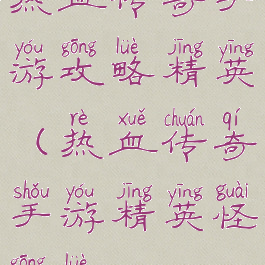 热血传奇手
yóu gōng lüè jīng yīng
游攻略精英
rè xuě chuán qí
（热血传奇
shǒu yóu jīng yīng guài
手游精英怪
gōng lüè